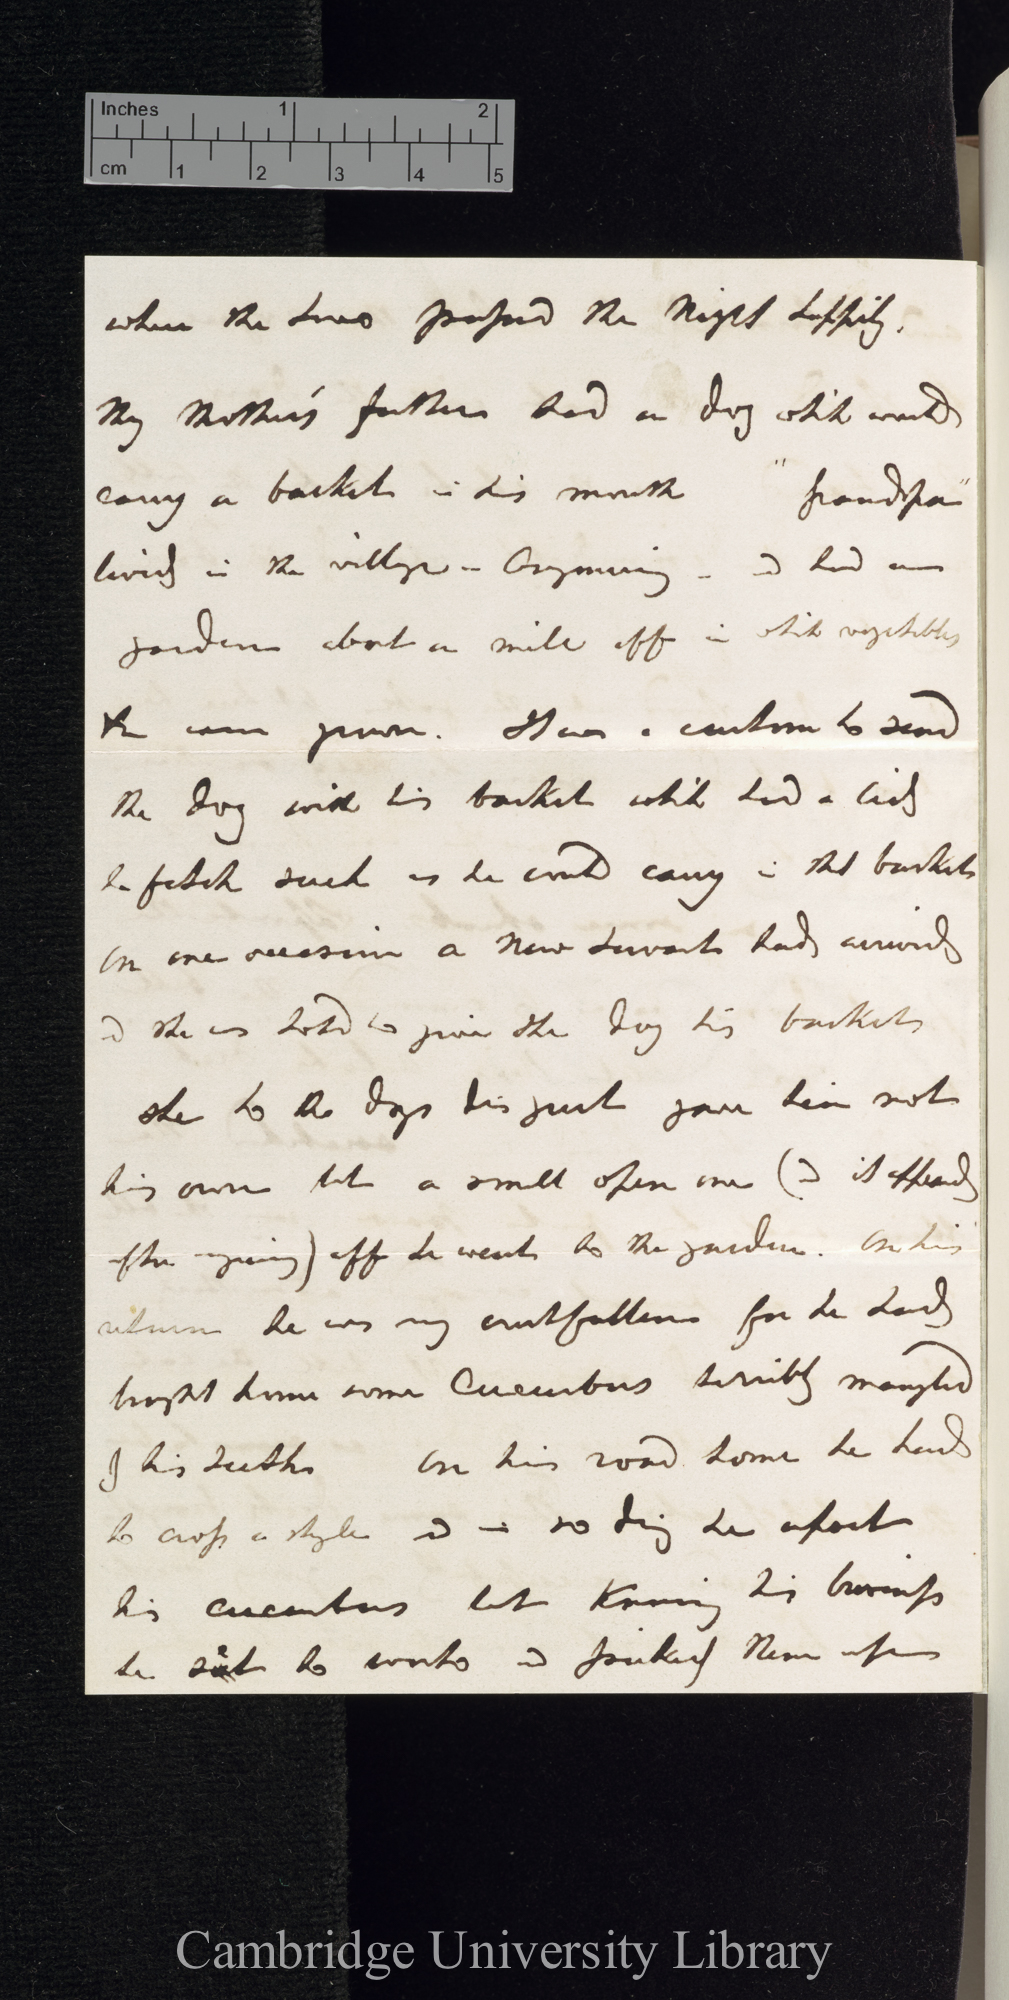 Inches 1 2
cm 1 2 3 4 5
where the two passed the night happily.
My Mother's father had a dog which would
carry a basket in his mouth "grandpa"
lived in the village — — and had a
garden about a mile off in which vegetables
were grown. It was a custom to send
the dog with his basket which had a lid
to fetch such as he could carry in that basket
On one occasion a new servant had arrived
and she was told to give the dog his basket
she to the dogs disgust gave him not
his own but a small open one (and it appeared
after ) off he went to the garden. On his
return he was very crestfallen for he had
brought home some Cucumbers terribly mangled
by his teeth On his road home he had
to cross a style and in so doing he upset
his cucumbers but knowing his business
he set to work and picked them up
Cambridge University Library